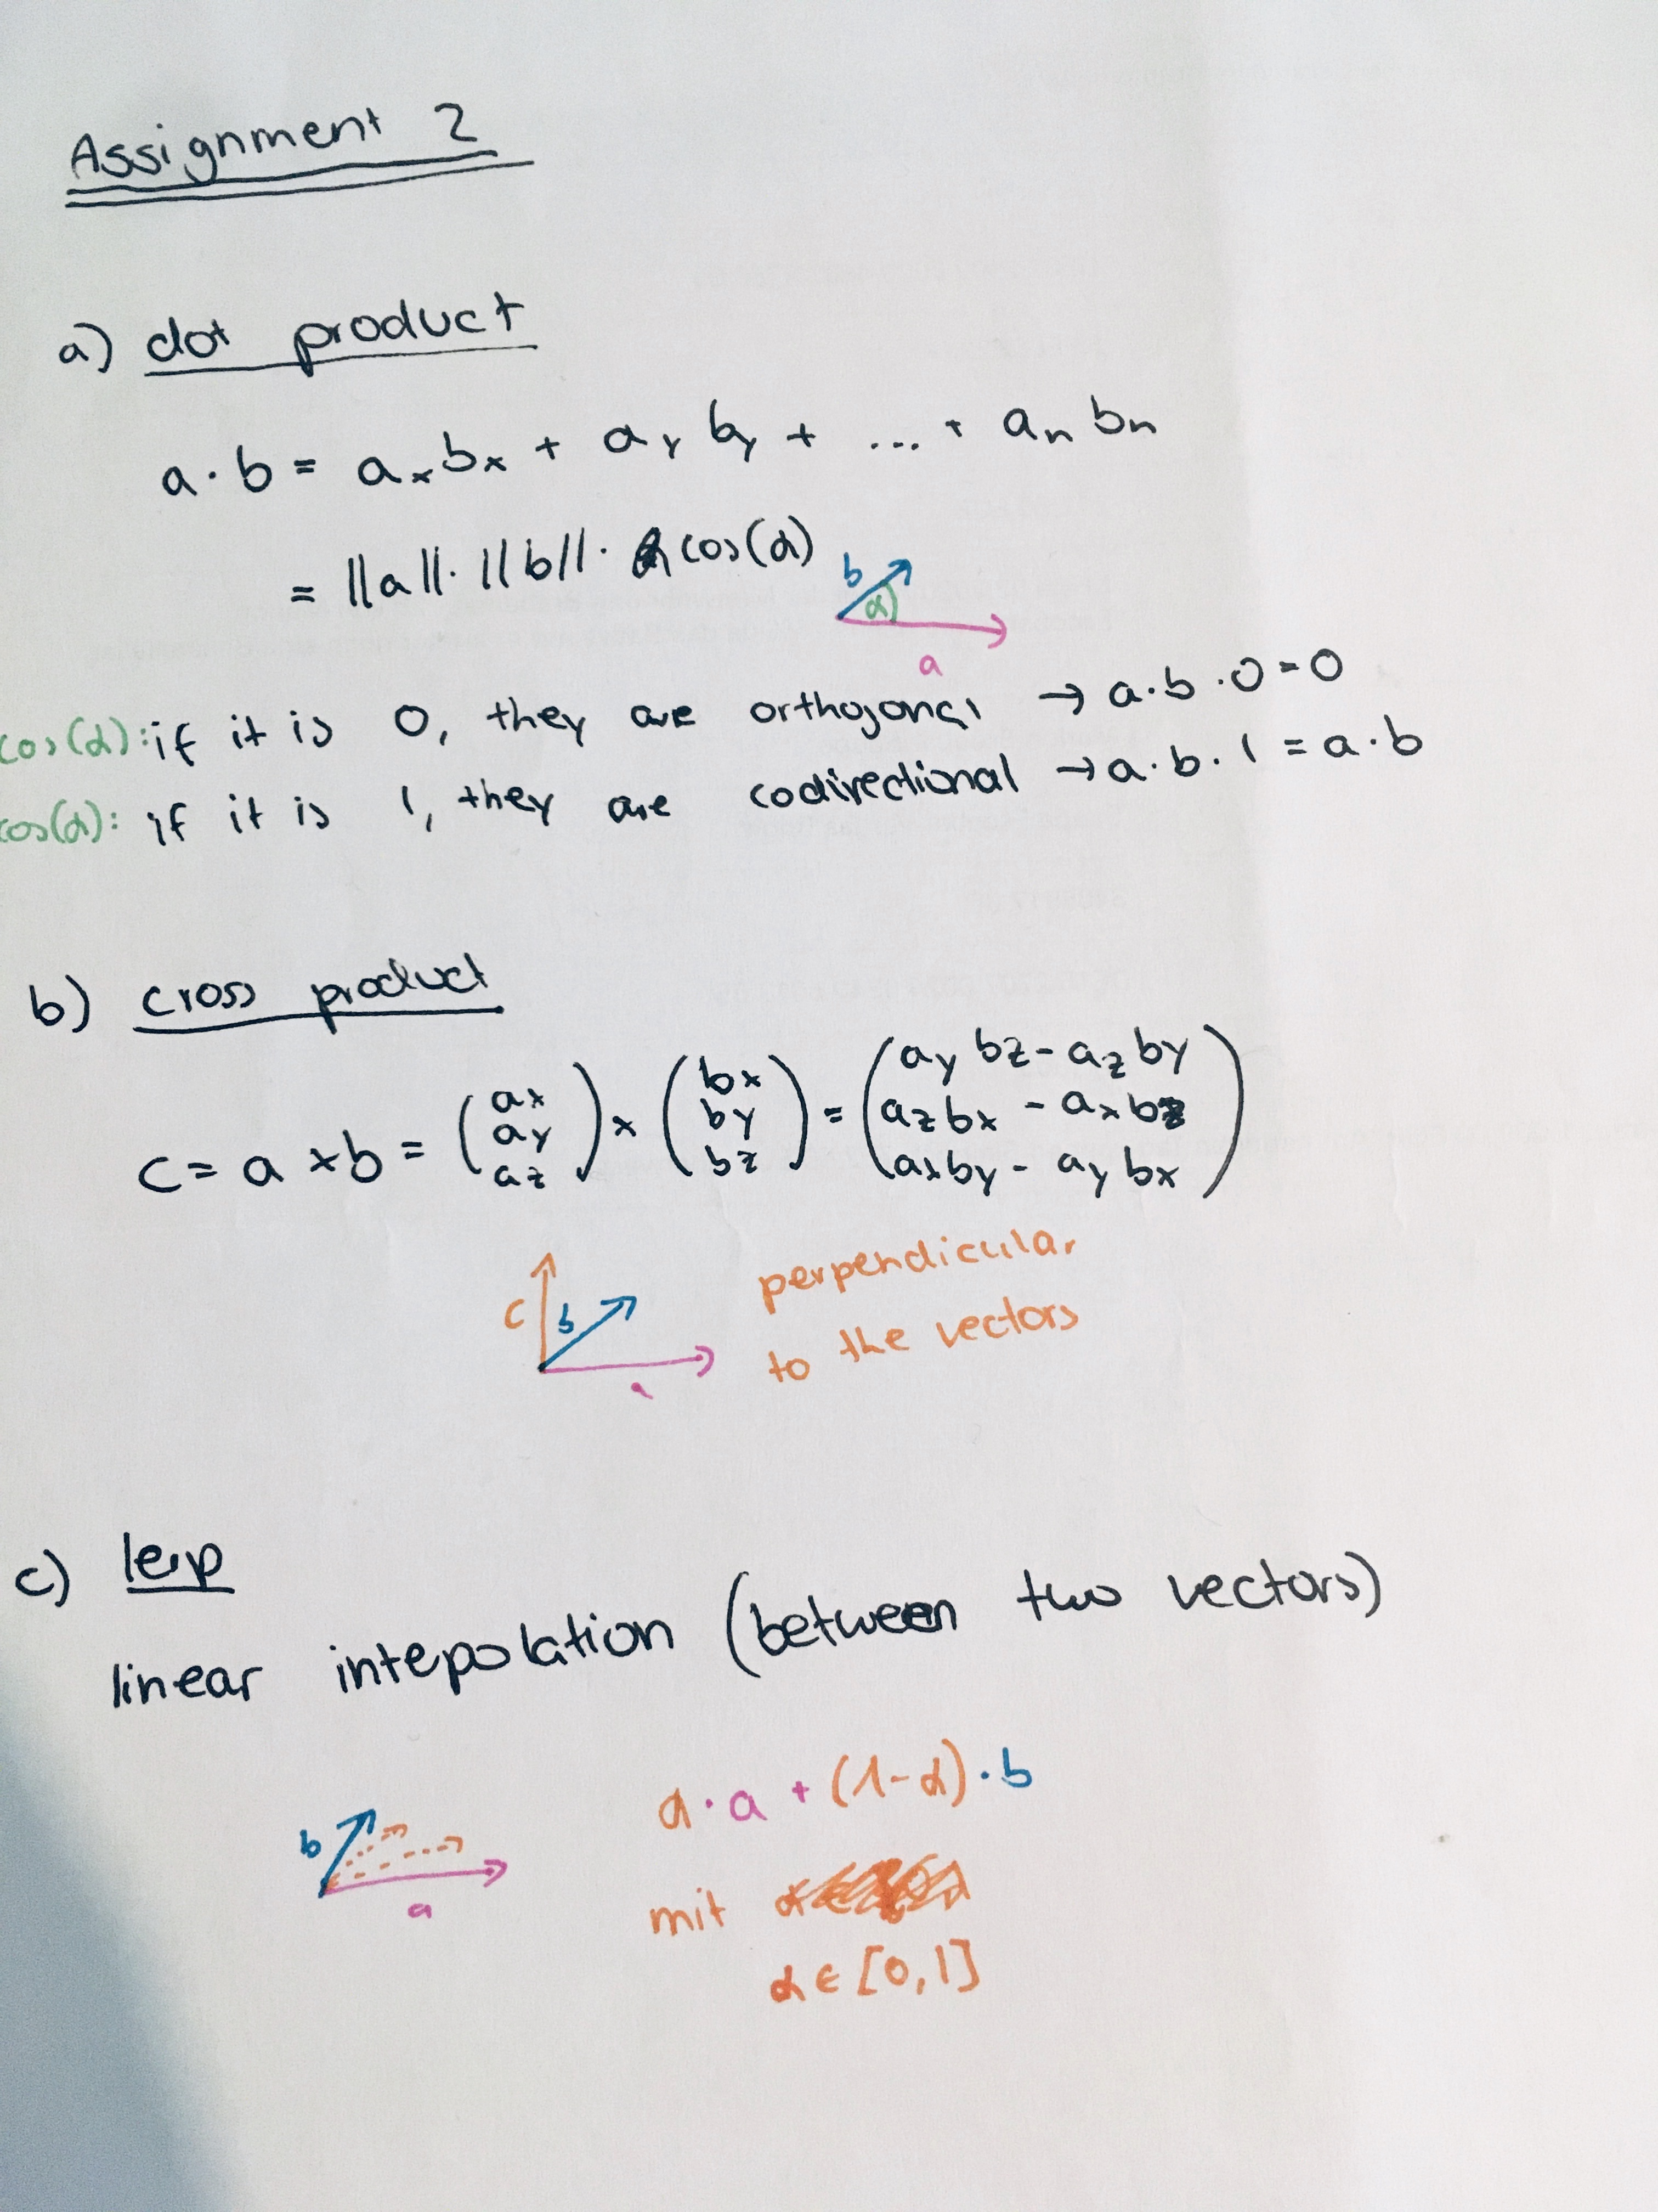 Assignment 2
a) dot product
a · b = axbx + ayby + ... + anbn
= ||a|| · ||b|| · cos(α)
b
α
a
cos(α): if it is 0, they are orthogonal → a·b·0=0
cos(α): if it is 1, they are codirectional → a·b·1 = a·b
b) cross product
c = a × b = (ax ay az) × (bx by bz) = (ay bz - az by
az bx - ax bz
ax by - ay bx)
c b a
perpendicular
to the vectors
c) lerp
linear intepolation (between two vectors)
α · a + (1-α) · b
b
a
mit
α ∈ [0,1]